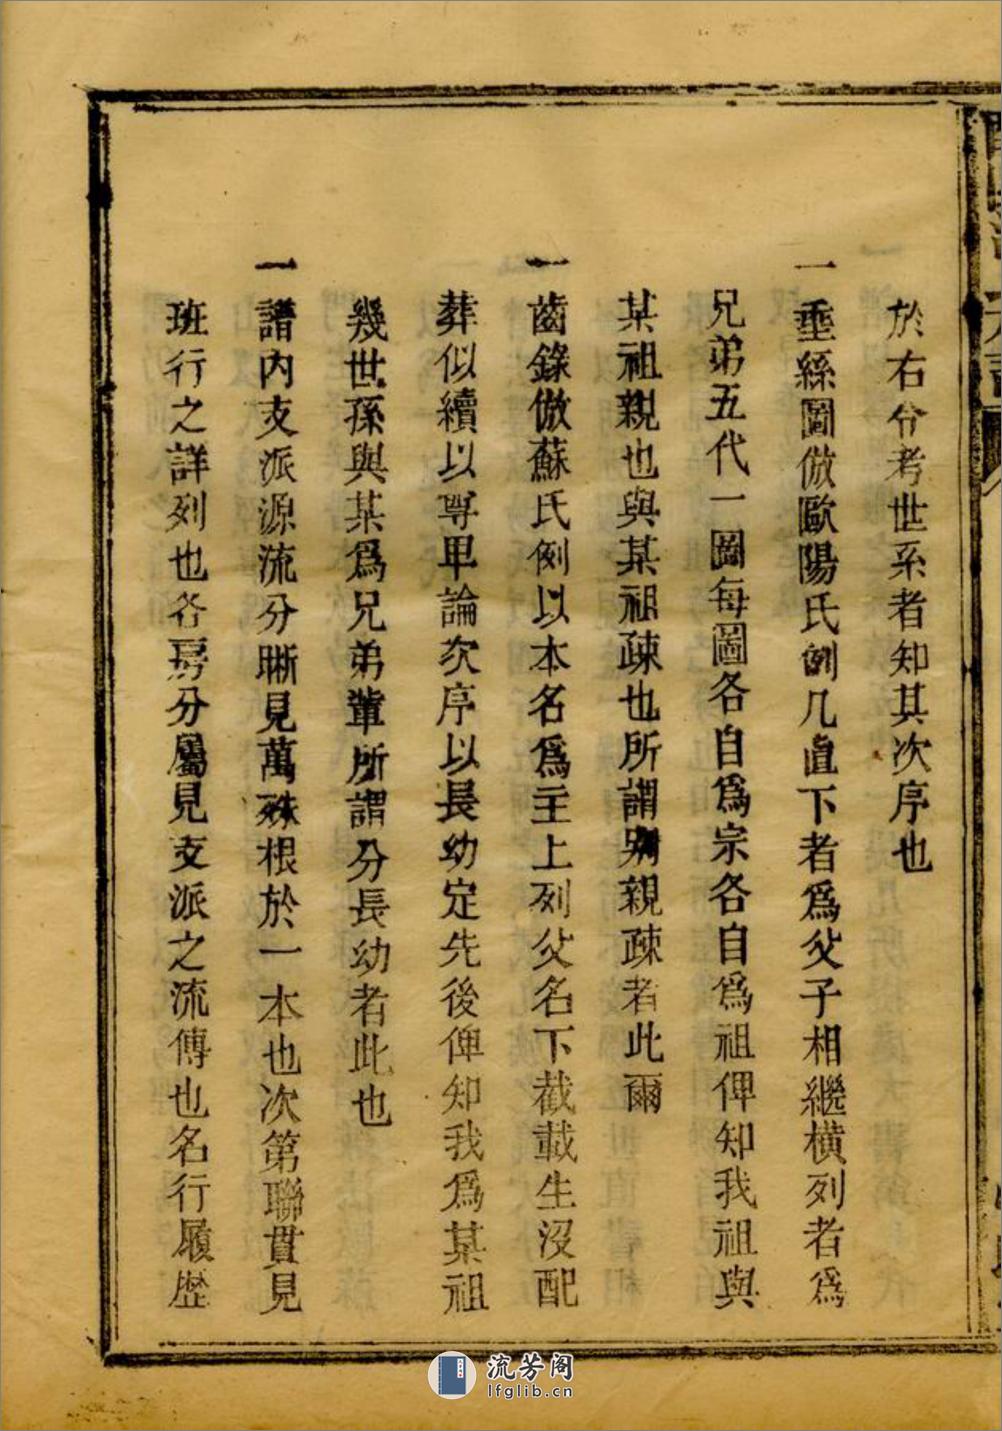 於右分考世系者知其次序也
一垂絲圖倣歐陽氏例几直下者為父子相繼橫列者為
兄弟五代一圖每圖各自為宗各自為祖俾知我祖與
某祖親也與某祖疎也所謂別親疎者此爾
一齒錄倣蘇氏例以本名為主上列父名下截載生沒配
葬似續以尊卑論次序以長幼定先後俾知我為某祖
幾世孫與某為兄弟輩所謂分長幼者此也
一譜內支派源流分晰見萬殊根於一本也次第聯貫見
班行之詳列也各房分屬見支派之流傳也名行履歷
流芳阁
lfglib.cn